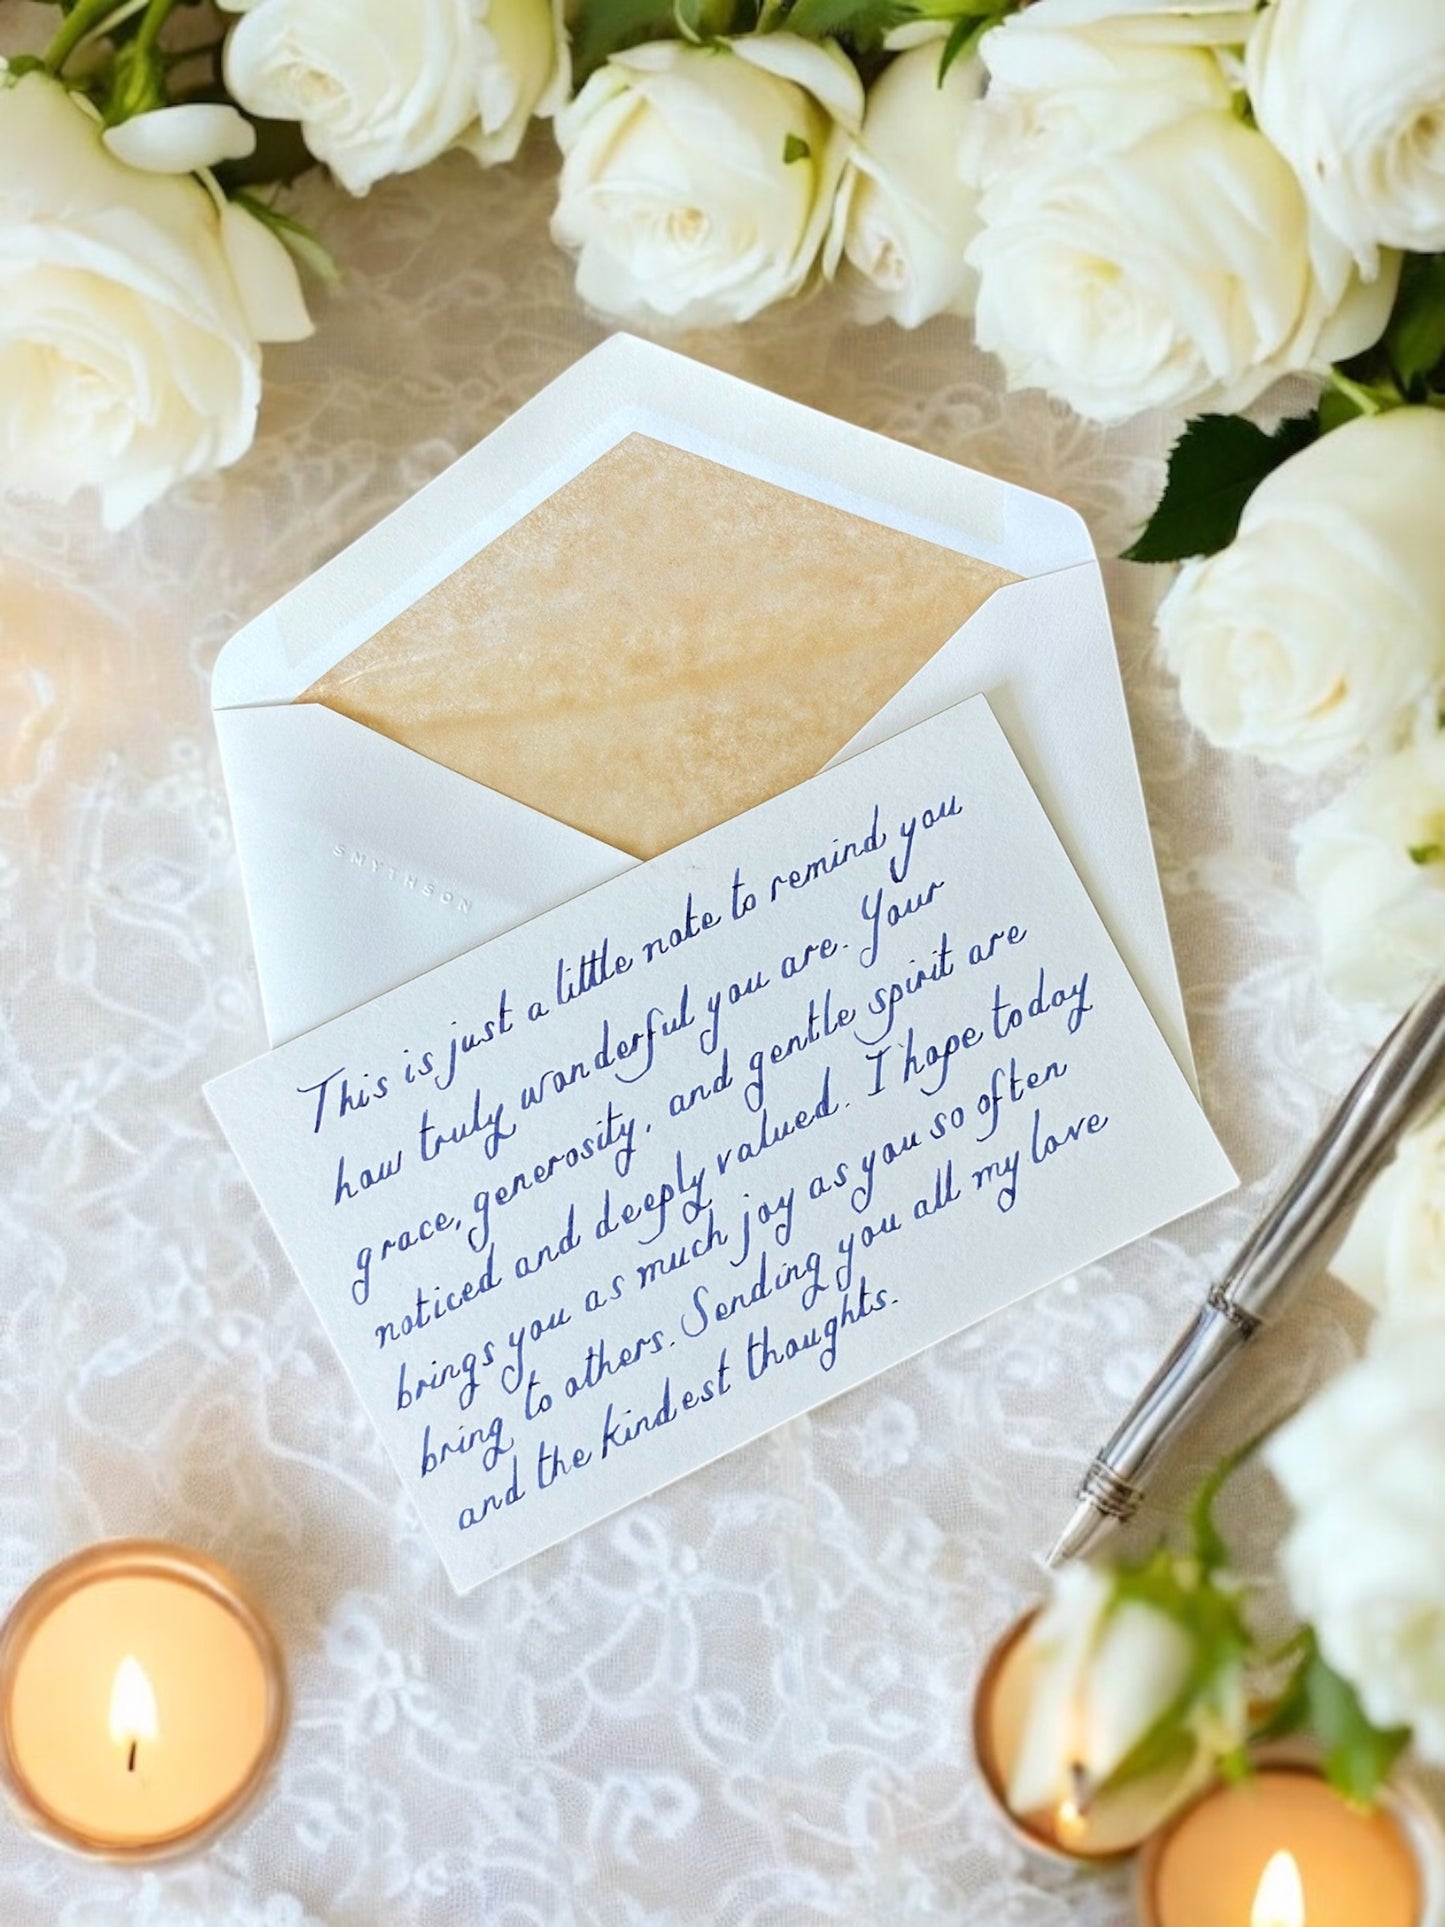 SMYTHSON
This is just a little note to remind you
how truly wonderful you are. Your
grace, generosity, and gentle spirit are
noticed and deeply valued. I hope today
brings you as much joy as you so often
bring to others. Sending you all my love
and the kindest thoughts.